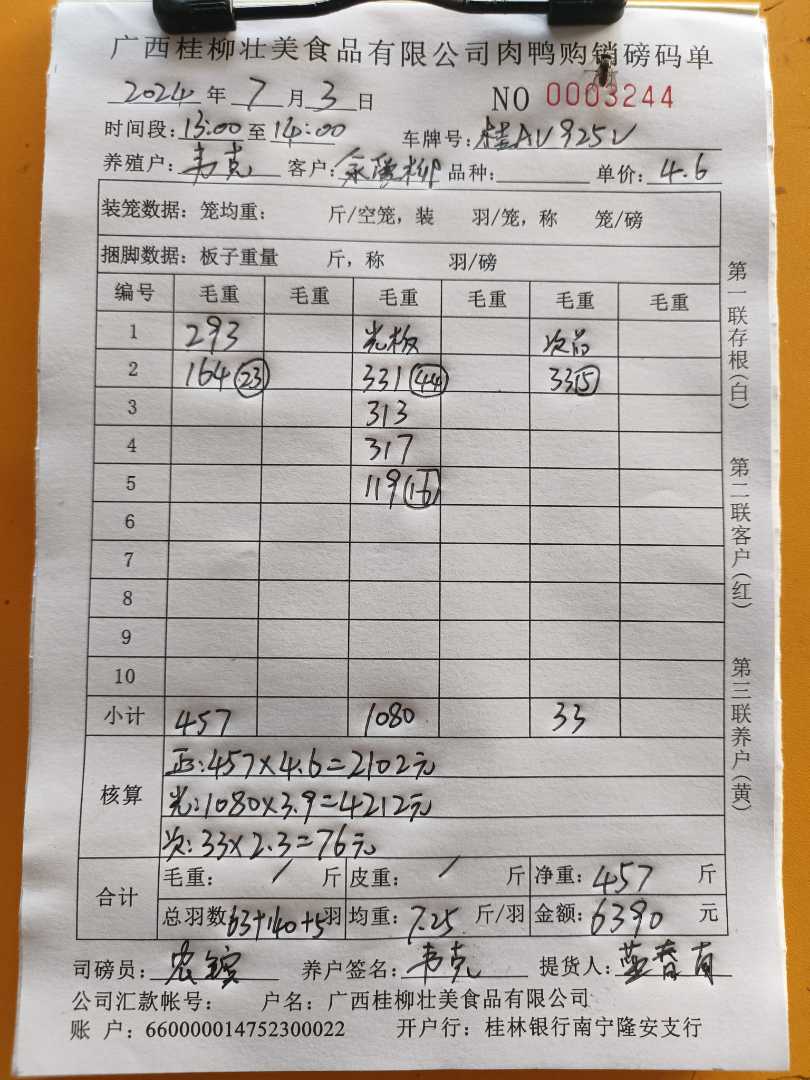 广西桂柳壮美食品有限公司肉鸭购销磅码单
2024年7月3日 NO 0003244
时间段:13:00至14:00 车牌号:桂AV925V
养殖户:韦克 客户: 品种: 单价:4.6
装笼数据:笼均重: 斤/空笼,装 羽/笼,称 笼/磅
捆脚数据:板子重量 斤,称 羽/磅
编号 毛重 毛重 毛重 毛重 毛重 毛重
1 293 光板 次品
2 164(23) 331(44) 33(5)
3 313
4 317
5 119(16)
6
7
8
9
10
小计 457 1080 33
核算
正:457×4.6=2102元
光:1080×3.9=4212元
次:33×2.3=76元
合计
毛重:/斤 皮重:/斤 净重:457斤
总羽数63+140+5羽 均重:7.25斤/羽 金额:6390元
司磅员: 养户签名:韦克 提货人:
公司汇款帐号: 户名:广西桂柳壮美食品有限公司
账 户:660000014752300022 开户行:桂林银行南宁隆安支行
第一联存根(白)
第二联客户(红)
第三联养户(黄)